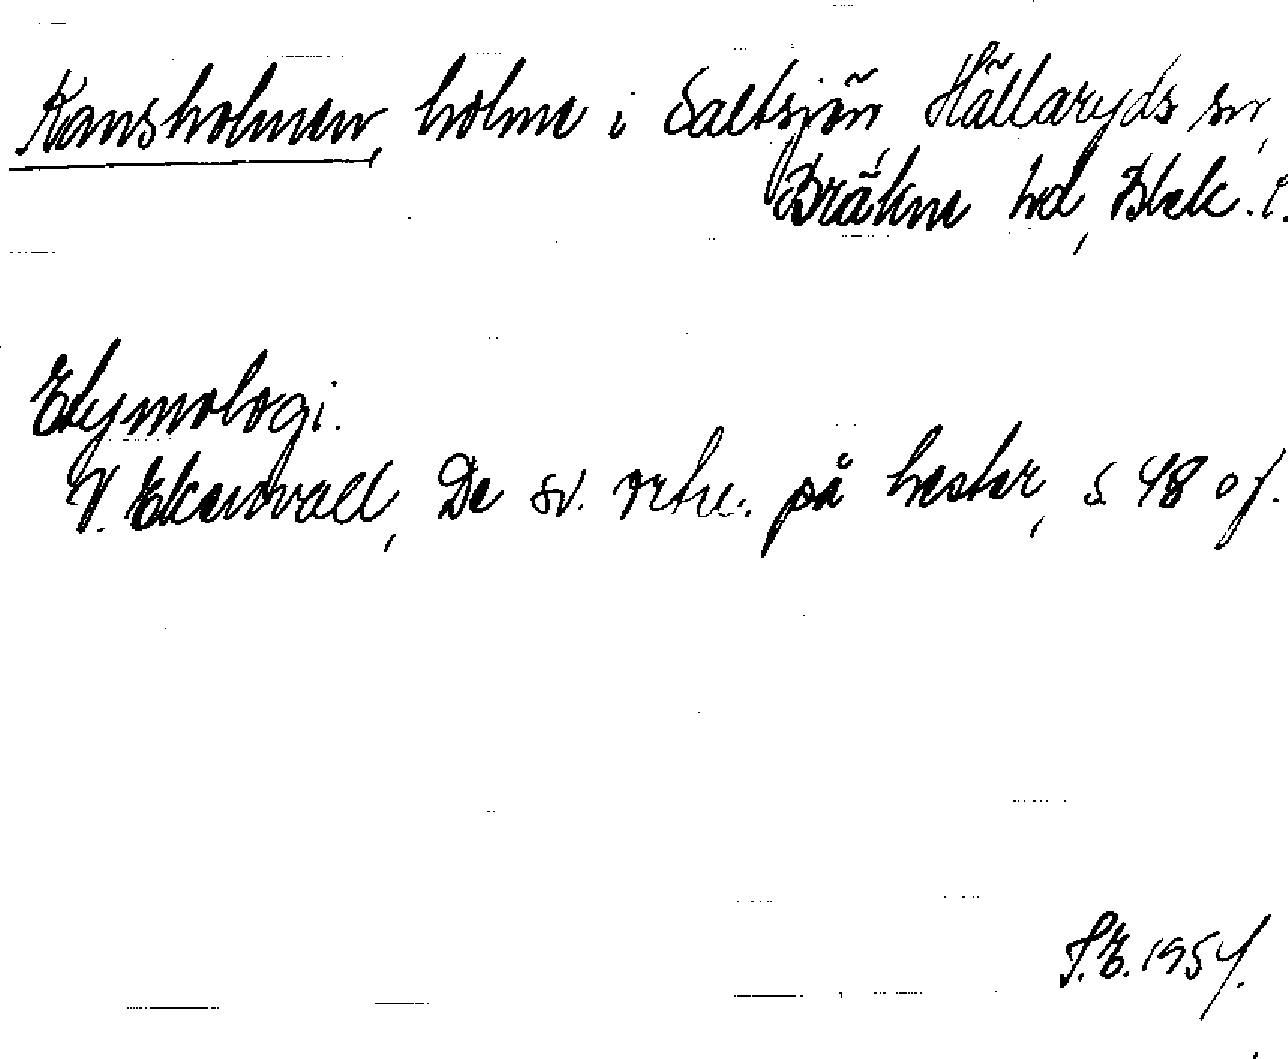 Kansholmen, holme i Saltsjön, Hällaryds sn,
Bräkne hd, Blek. l.
Etymologi.
V. Ekenvall, De sv. ortn. på hester, s 48 of.
S.E. 1954.